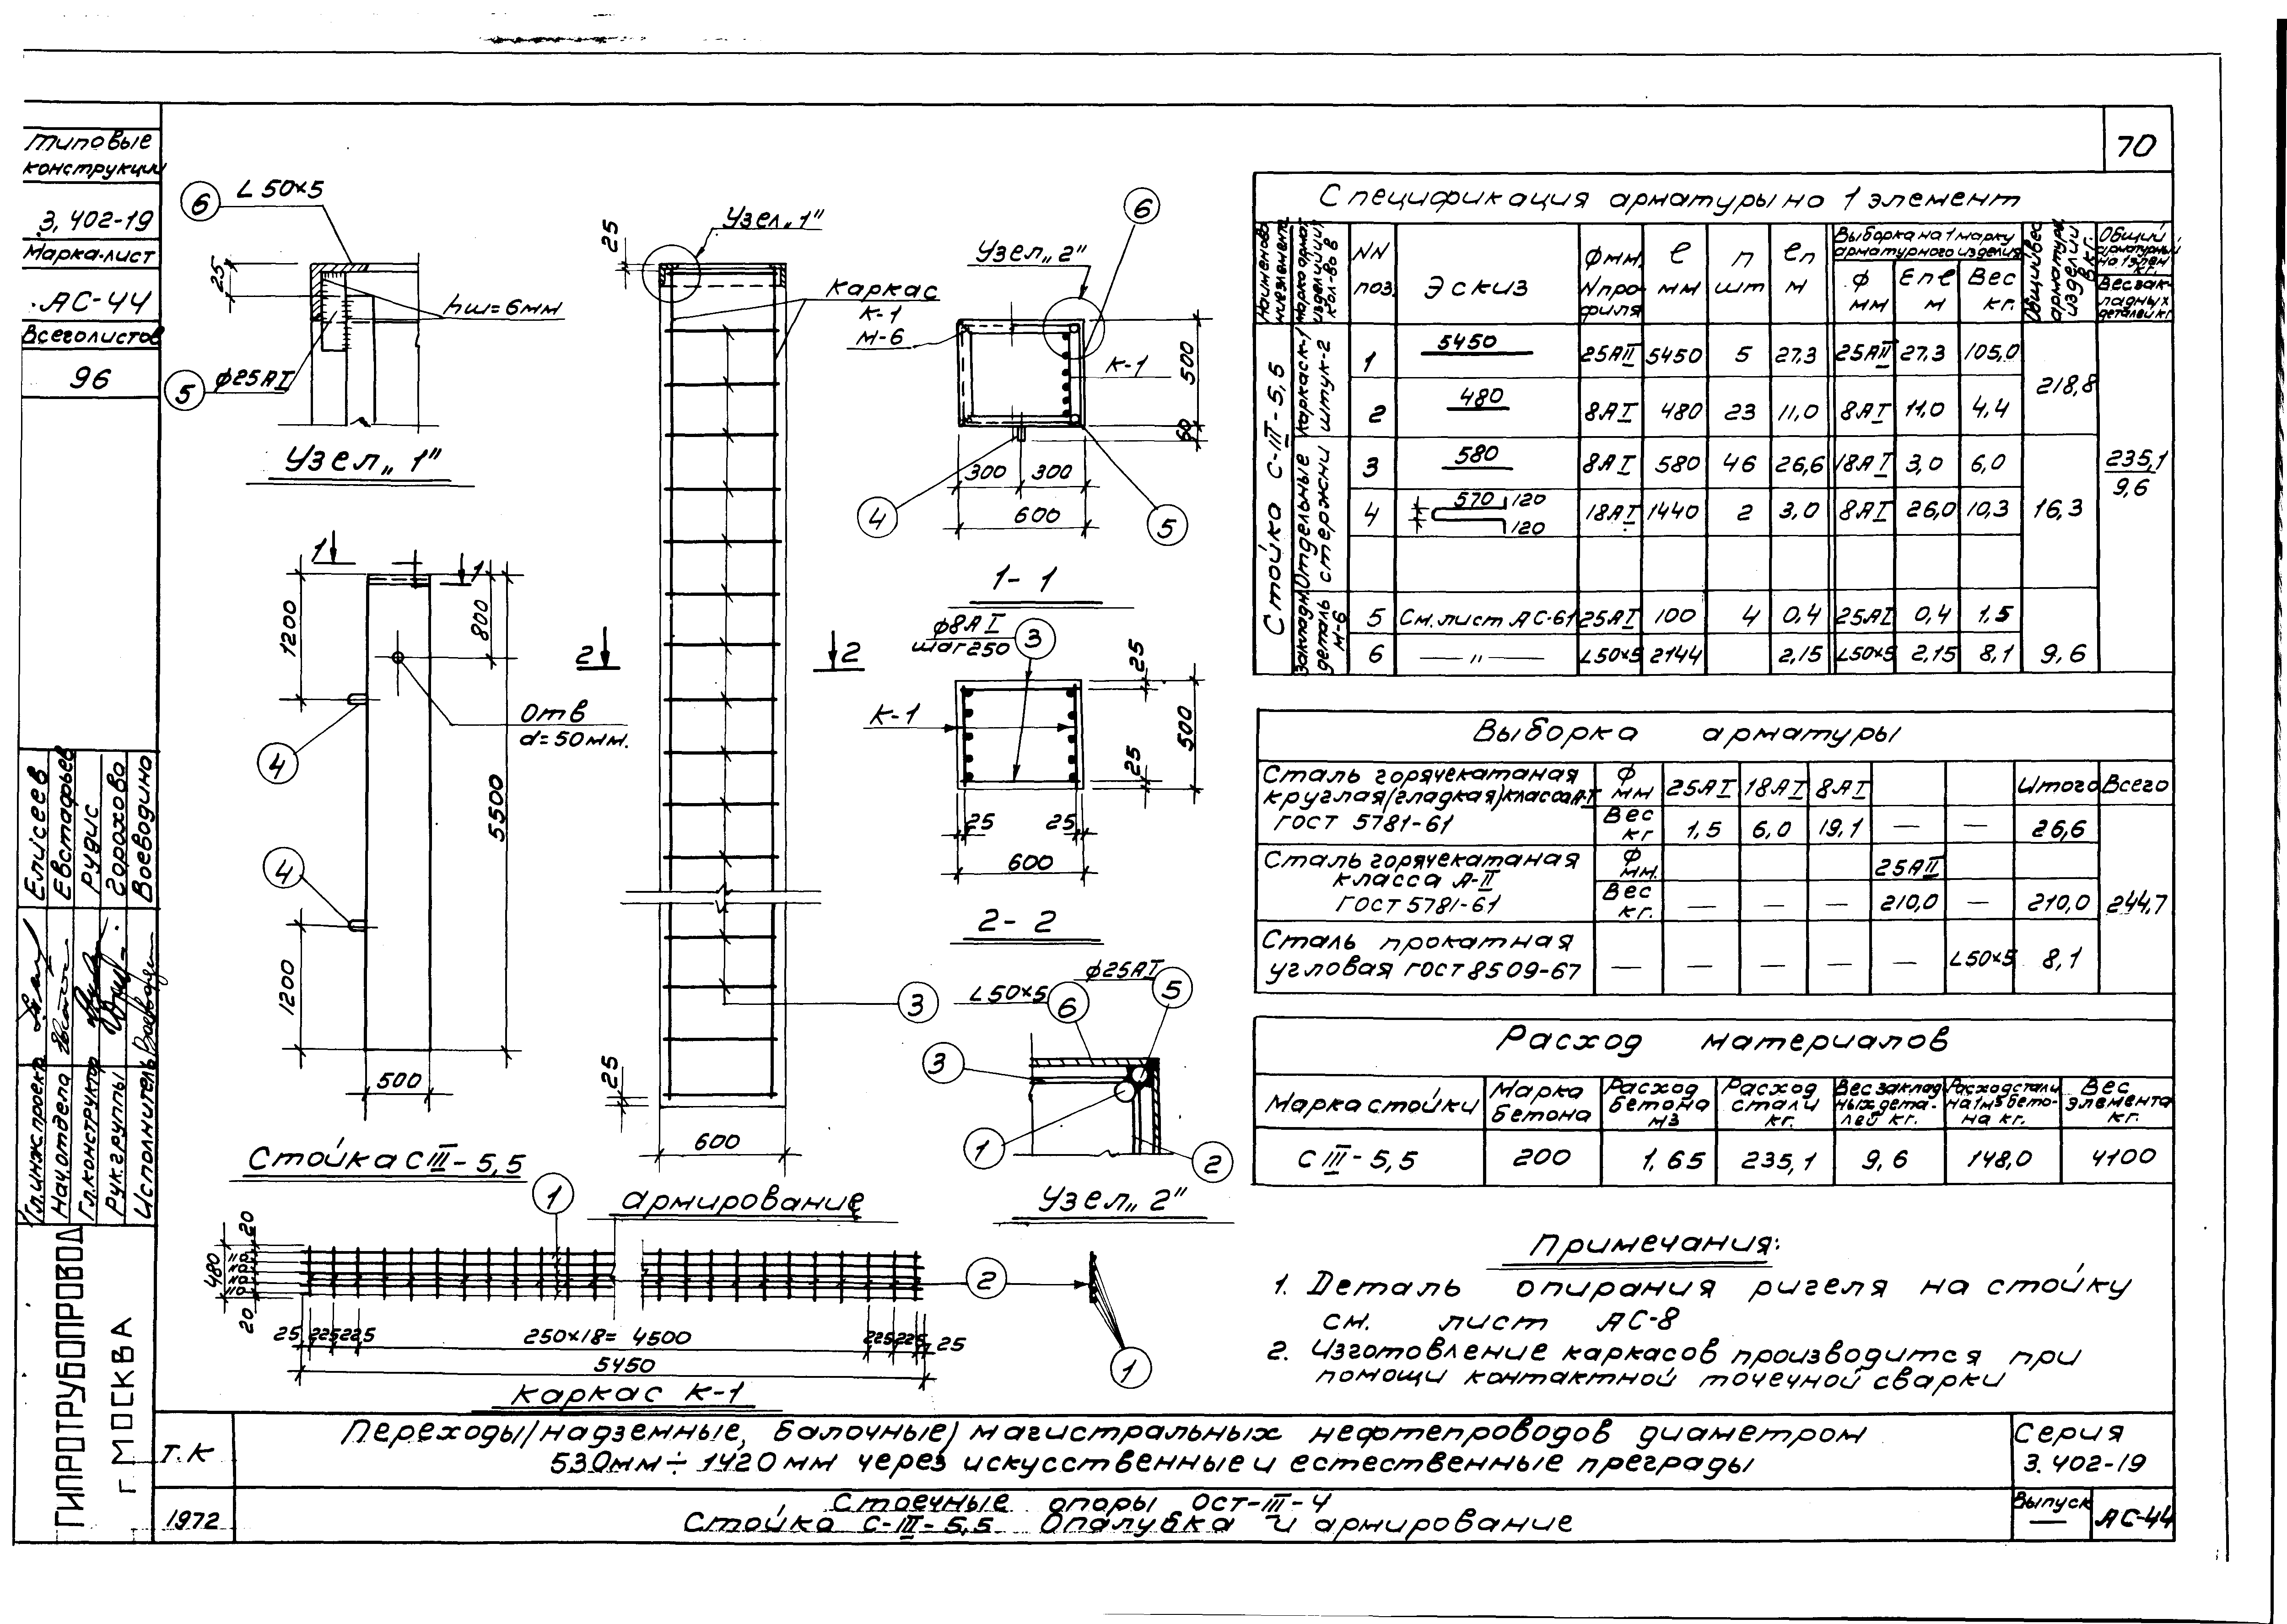 70
Типовые
конструкции
3.402-19
Марка-лист
АС-44
Всего листов
96
Елисеев
Евстафьев
Рудис
Горохова
Воеводина
Гл.инж.проекта
Нач.отдела
Гл.конструктор
Рук.группы
Исполнитель
ГИПРОТРУБОПРОВОД
г. МОСКВА
6
L 50×5
25
hш=6мм
5
ф25АI
Узел „1"
1
1
1200
800
5500
4
Отв
d=50мм.
4
1200
500
Стойка СIII-5,5
25
Узел „1"
Каркас
К-1
М-6
2
2
3
25
600
армирование
Узел „2"
6
К-1
500
60
300
300
600
4
5
1-1
ф8АI
шаг250
3
К-1
25
500
25
25
25
600
2-2
L50×5
6
ф25АI
5
3
1
2
Узел „2"
1
480
20
110
110
110
110
20
2
1
25
225
225
250×18= 4500
225
225
25
5450
Каркас К-1
Спецификация арматуры на 1 элемент
NN
поз.
Эскиз
Фмм.
Nпро-
филя
ℓ
мм
n
шт
ℓn
м
Выборка на 1 марку
арматурного изделия
Ф
мм
Eпℓ
м
Вес
кг.
Стойка С-III-5,5
Каркас К-1
штук-2
Отдельные
стержни
Закладн.
деталь
М-6
1
5450
25АII
5450
5
27.3
25АII
27.3
105,0
218,8
2
480
8АI
480
23
11,0
8АI
11,0
4,4
3
580
8АI
580
46
26,6
18АI
3,0
6,0
16,3
235,1
9,6
4
570
120
120
18АI
1440
2
3.0
8АI
26,0
10,3
5
См. лист АС-61
25АI
100
4
0,4
25АI
0,4
1,5
6
— „ —
L50×5
2144
2,15
L50×5
2,15
8,1
9,6
Выборка арматуры
Сталь горячекатаная
круглая/гладкая/класса А-I
ГОСТ 5781-61
Ф
мм
25АI
18АI
8АI
Итого
Всего
Вес
кг
1,5
6,0
19,1
—
—
26,6
Сталь горячекатаная
класса А-II
ГОСТ 5781-61
Ф
мм.
25АII
Вес
кг.
—
—
—
210,0
—
210,0
244,7
Сталь прокатная
угловая ГОСТ 8509-67
—
—
—
—
—
L50×5
8,1
Расход материалов
Марка стойки
Марка
бетона
Расход
бетона
м3
Расход
стали
кг.
Вес заклад
ных дета-
лей кг.
Расход стали
на 1м³ бето-
на кг.
Вес
элемента
кг.
С III-5,5
200
1,65
235,1
9,6
148,0
4100
Примечания:
1. Деталь опирания ригеля на стойку
см. лист АС-8
2. Изготовление каркасов производится при
помощи контактной точечной сварки
Т.К
Переходы/надземные, балочные/магистральных нефтепроводов диаметром
530мм÷1420мм через искусственные и естественные преграды
Серия
3.402-19
1972
Стоечные опоры ОСТ-III-4
Стойка С-III-5,5 Опалубка и армирование
Выпуск
—
АС-44